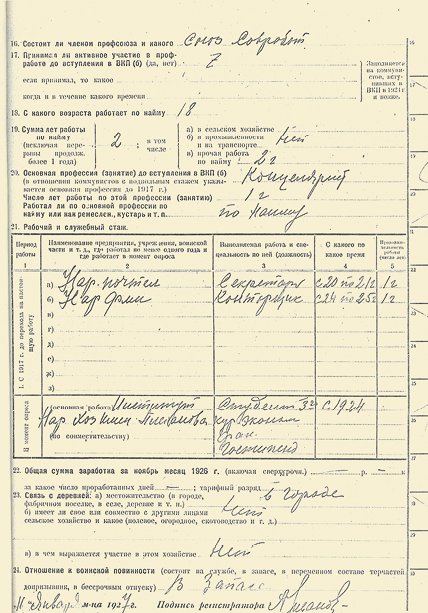 16. Состоит ли членом профсоюза и какого Союз Совработ. 16
17. Принимал ли активное участие в проф-
работе до вступления в ВКП (б) (да, нет)
если принимал, то какое
когда и в течение какого времени
Заполняется
на коммуни-
стов, всту-
пивших в
ВКП в 1921 г.
и позже.
18. С какого возраста работает по найму 18
19. Сумма лет работы
по найму
(исключая пере-
рывы продолж.
более 1 года)
2 ; в том
числе:
а) в сельском хозяйстве
б) в промышленности
и на транспорте
Нет
в) прочая работа
по найму 2 г
20. Основная профессия (занятие) до вступления в ВКП (б)
(в отношении коммунистов с подпольным стажем указы-
вается основная профессия до 1917 г.)
Число лет работы по этой профессии (занятию) 1 г
Работал ли по основной профессии по
найму или как ремеслен., кустарь и т. п. по найму
21. Рабочий и служебный стаж.
Период
работы
Наименование предприятия, учреждения, воинской
части и т. д., где работал не менее одного года и
где работает в момент опроса
Выполняемая работа и спе-
циальность по ней (должность)
С какого по
какое время
1 2 3 4 5
1. С 1917 г. до перехода на настоя-
щую работу
а) Нар. почтел Секретарь с 20 по 21 г 1 г
б) Конторщик с 24 по 25 г 1 г
в)
г)
д)
е)
ж)
з)
В момент опроса
(основная работа) Институт Студент 3 с 1924
Нар Хоз имени Плеханова
(по совместительству)
22. Общая сумма заработка за ноябрь месяц 1926 г. (включая сверхурочн.) — р. — к.
за какое число проработанных дней — ; тарифный разряд
23. Связь с деревней: а) местожительство (в городе, в городе
фабричном поселке, в селе, деревне и т. п.)
б) имеет ли свое или совместно с другими лицами Нет
сельское хозяйство и какое (полевое, огородное, скотоводство и т. д.)
в) в чем выражается участие в этом хозяйстве Нет
24. Отношение к воинской повинности (состоит на службе, в запасе, в переменном составе терчастей
допризывник, в бессрочным отпуску) В Запасе
11 Января м-ца 1927 г. Подпись регистратора